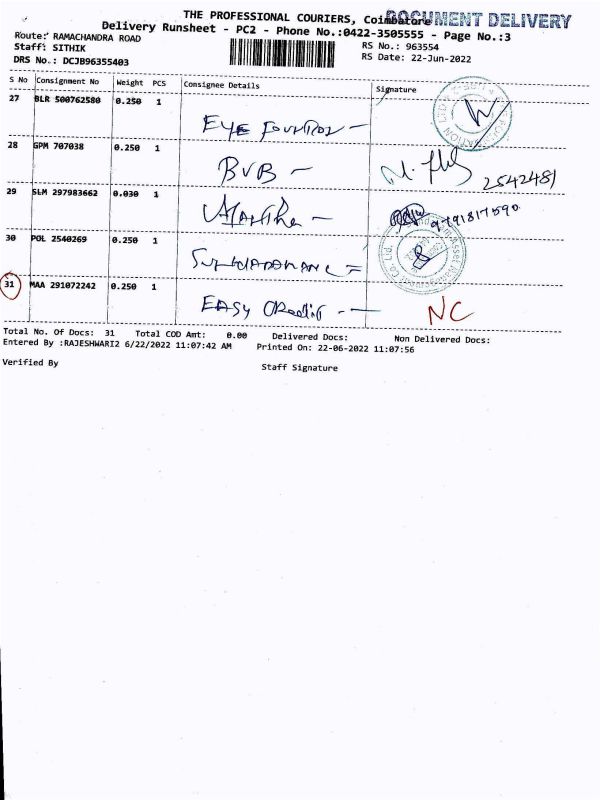 THE PROFESSIONAL COURIERS, Coimbatore
DOCUMENT DELIVERY
Delivery Runsheet - PC2 - Phone No.:0422-3505555 - Page No.:3
Route: RAMACHANDRA ROAD
RS No.: 963554
Staff: SITHIK
RS Date: 22-Jun-2022
DRS No.: DCJB96355403
S No Consignment No Weight PCS Consignee Details Signature
27 BLR 500762580 0.250 1 EYE
28 GPM 707038 0.250 1 BVB - 2542481
29 SLM 297983662 0.030 1 9791817590
30 POL 2540269 0.250 1
31 MAA 291072242 0.250 1 EASY Credit -- NC
Total No. Of Docs: 31 Total COD Amt: 0.00 Delivered Docs: Non Delivered Docs:
Entered By :RAJESHWARI2 6/22/2022 11:07:42 AM Printed On: 22-06-2022 11:07:56
Verified By Staff Signature